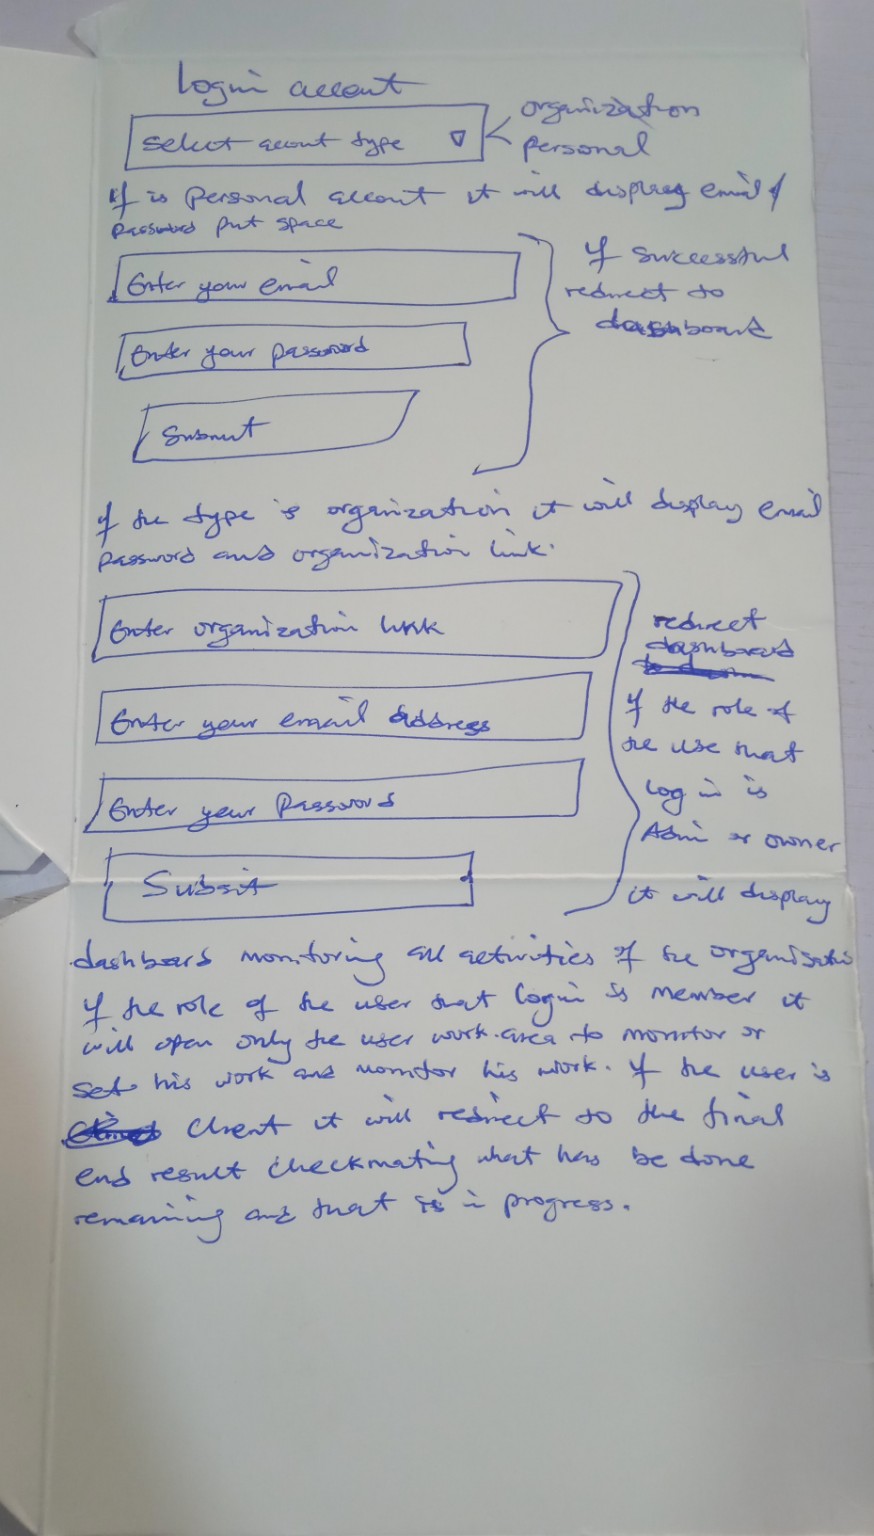 login account
Select acount type
organization
personal
If is Personal account it will display email /
password put space
Enter your email
Enter your password
Submit
If successful
redirect to
dashboard
If the type is organization it will display email
password and organization link.
Enter organization link
Enter your email address
Enter your Password
Submit
redirect
dashboard
If the role of
the use that
log in is
Admin or owner
it will display
dashboard monitoring all activities of the organisation
If the role of the user that login is member it
will open only the user work area to monitor or
set his work and monitor his work. If the user is
Client it will redirect to the final
end result checkmating what has be done
remaining and that is in progress.